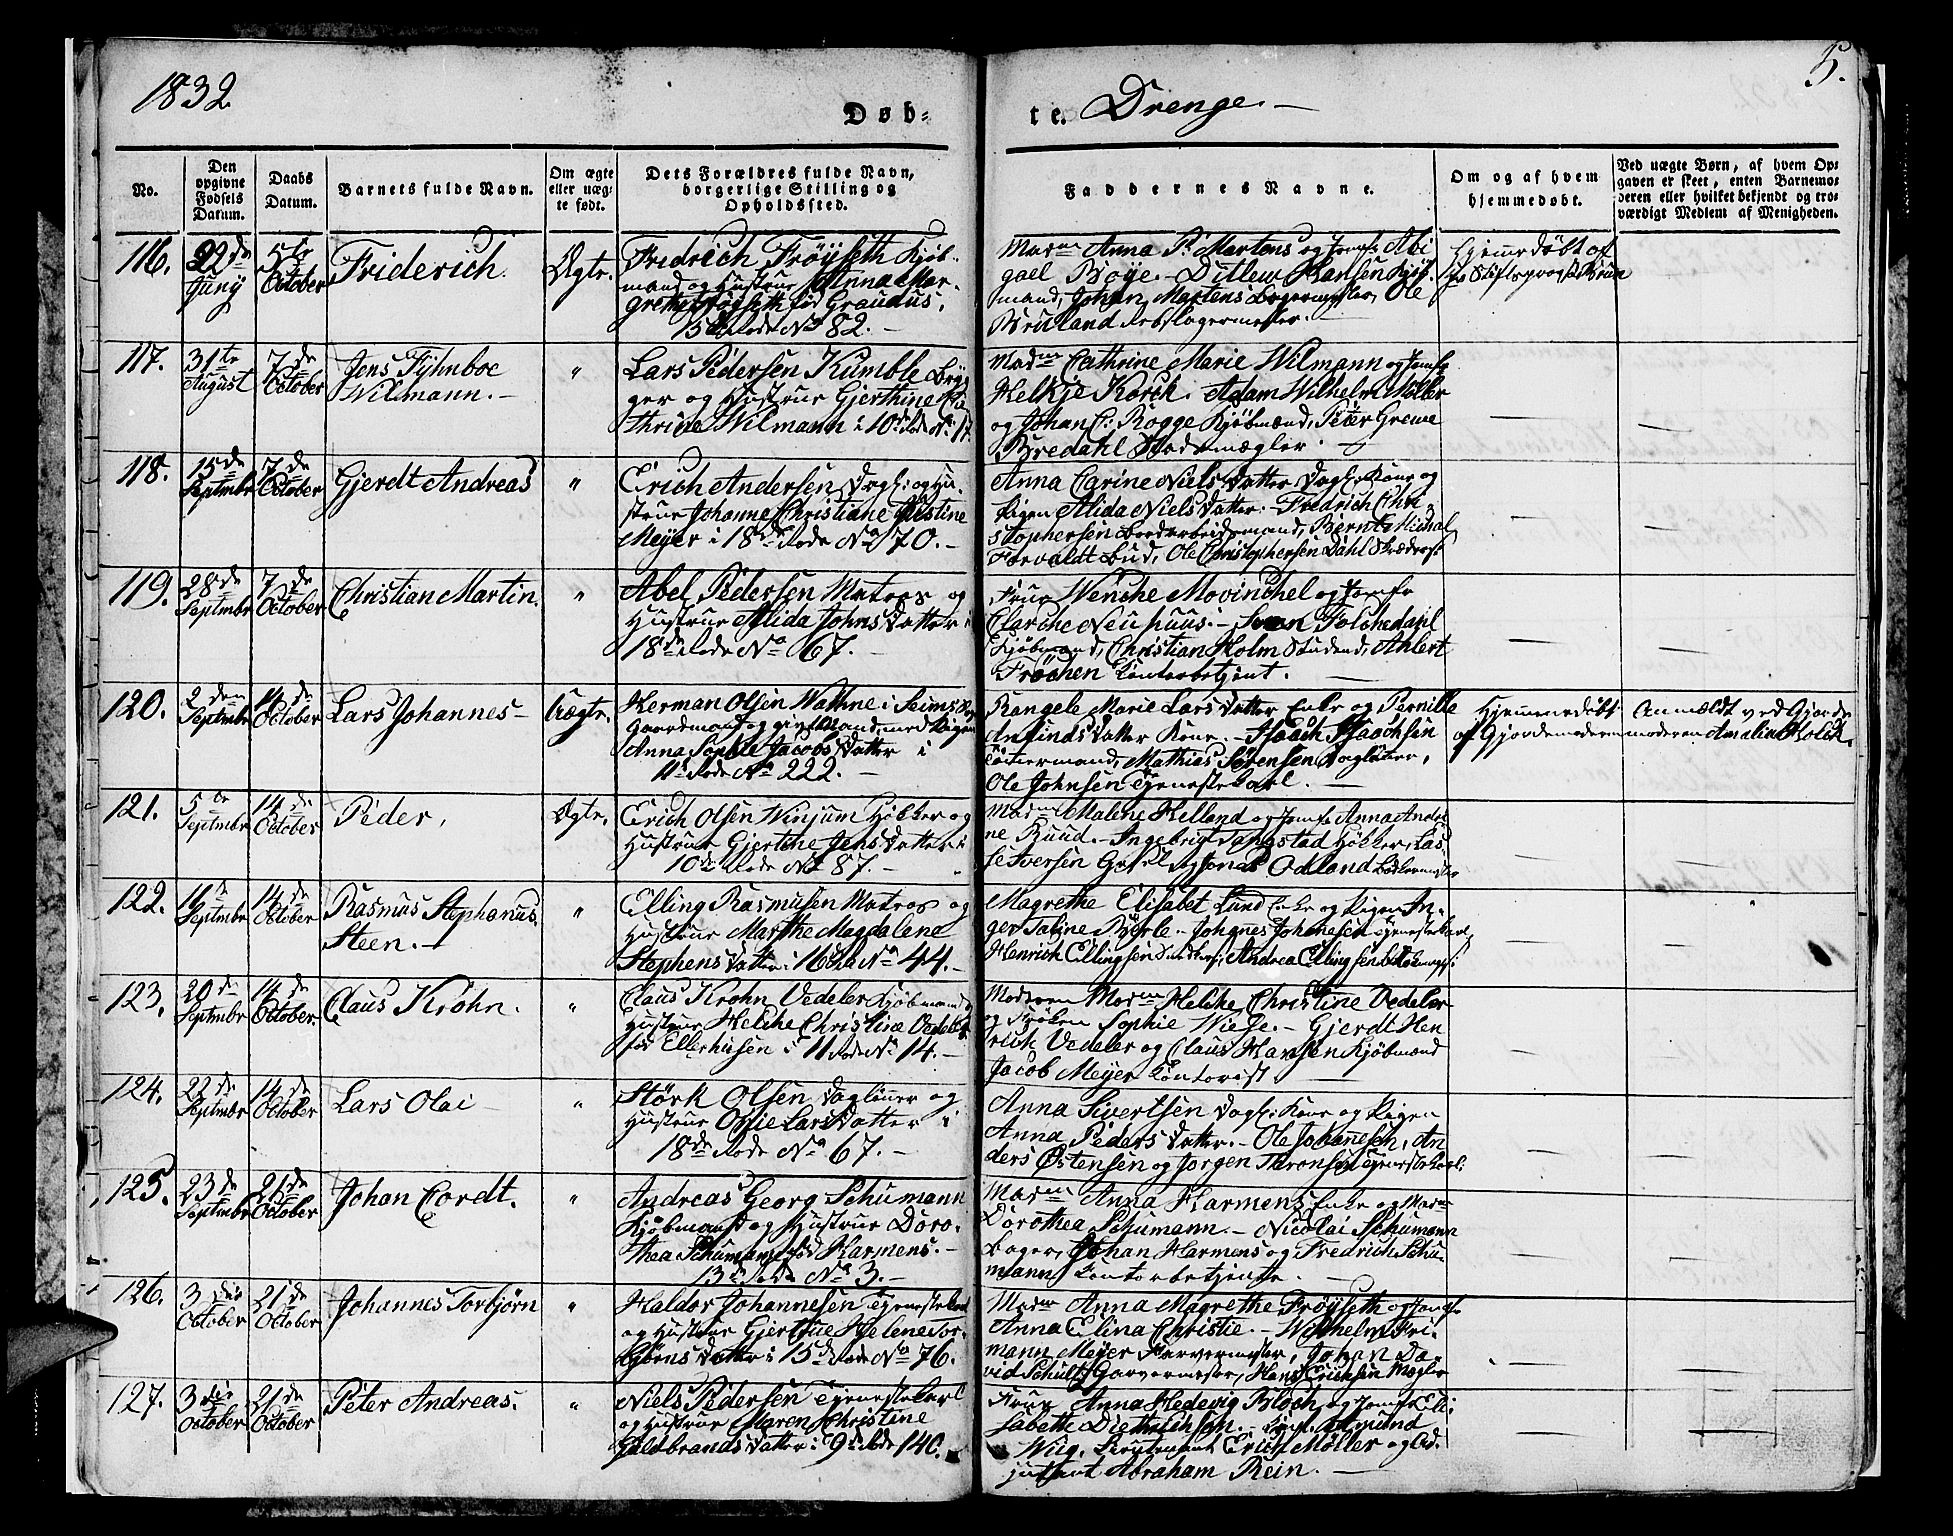 1832.
5.
Døb-
te. Drenge. —
No.
Den opgivne Fødsels Datum.
Daabs Datum.
Barnets fulde Navn.
Om ægte eller uægte født.
Dets Forældres fulde Navn, borgerlige Stilling og Opholdssted.
Faddernes Navne.
Om og af hvem hjemmedøbt.
Ved uægte Børn, af hvem Opgaven er skeet, enten Barnemoderen eller hvilket bekjendt og troværdigt Medlem af Menigheden.
116. 22de Juny 5te October Friderich. Ægte.
Fredrich Frøyseth Kjøb-
mand og Hustrue Anna Mar-
grethe Frøyseth fød Graudus.
15de Rode No 82. —
Madme Anna P. Martens og Jomfr Abi
gael Boye. — Ditlew Hansen Kjøb
mand, Johan Martens Bagermester, Ole
Bruland Rebslagermester. —
Hjemedøbt af
Hr Stiftsprovst Brun
117. 31te August 7de October Jens Fyhnboe
Wilmann. — "
Lars Pedersen Kumble Bryg
ger og Hustrue Gjerthine Ka
thrine Wilmann i 10de Rode No 17.
Madme Cathrine Marie Wilmann og Jomfr
Helkje Korck. Adam Wilhelm Møller
og Johan C: Rogge Kjøbmænd, Peter Greve
Bredahl Stadsmægler. —
118. 15de Septmbr 7de October Gjerdt Andreas "
Erich Andersen Dagl: og Hu-
strue Johanne Christiane Justine
Meyer i 18de Rode No 70. —
Anna Carine Niels Datter Dagl: Kone og
Pigen Alida Niels Datter. Fredrich Chri
stophersen Bordarbeidsmand, Bernt Michal
Forvaldt Bud, Ole Christophersen Dahl Skrædersv
119. 28de Septmbr 7de October Christian Martin. "
Abel Pedersen Matros og
Hustrue Alida Johns Datter i
18de Rode No 67. —
Frue Wenche Movinchel og Jomfr
Clariche Neuhuus. —
Kjøbmand, Christian Holm Student, Ahlert
Frøchen Contorbetjent.
120. 2den Septmbr 14de October Lars Johannes — Uægte.
Herman Olsen Wathne i Seims
Gaardmand og givt Mand, med Pigen
Anna Sophie Jacobs Datter i
11te Rode No 222. —
Rangele Marie Lars Datter Enke og Pernille
Amunds Datter Kone. — Isaach Isaachsen
Tømermand, Mathias Sørensen Dagleier,
Ole Johnsen Tjenestekarl. —
Hjemmedøbt
af Gjordemoderen
Anmeldt ved Gjorde
moderen Amalia Holck.
121. 5te Septmbr 14de October Peder, Ægte.
Erich Olsen Winjum Høkker og
Hustrue Gjertche Jens Datter i
10de Rode No 87. —
Madme Malene Helland og Jomfr Anna Andre
ne Ruud. — Ingebrigt Tangstad Høkker, Las
se Iversen og Jonas Odland Bødkermester
122. 16de Septmbr 14de October Rasmus Stephanus
Steen. — "
Elling Rasmusen Matros og
Hustrue Marthe Magdalena
Stephens Datter i 16de Rode No 44. —
Magrethe Elisabet Lund Enke og Pigen In-
ger Taline Børle. — Johanes Johanesen Tjenestekarl,
Henrich Ellingsen, Andrea Ellingsen
123. 20de Septmbr 14de October. Claus Krohn. "
Claus Krohn Vedeler Kjøbmand og
Hustrue Helche Christine Vedeler
fød Ellerhusen i 11 Rode No 14. —
Moderen Madme Helche Christine Vedeler
og Frøken Sophie Wiese. — Gjerdt Hen
rich Vedeler og Claus Hansen Kjøbmænd
Jacob Meyer Contorist —
124. 22de Septmbr 14de October Lars Olai — "
Størk Olsen Dagleier og
Hustrue Ossie Lars Datter i
18de Rode No 67. —
Anna Sivertsen Dagl: Kone og Pigen
Anna Peders Datter. — Ole Johanesen, An
ders Østensen og Jorgen Thronsen Tjenestekarl.
125. 23de Septmbr 21de October Johan Cordt. "
Andreas Georg Schumann
Kjøbmand og Hustrue Doro-
thea Schumann fød Harmens. —
13de Rode No 3. —
Madme Anna Harmens Enke og Madme
Dorothea Schumann. — Nicolai Schumann
Bager, Johan Harmens og Fredrich Schu-
mann Contorbetjente. —
126. 3die October 21de October Johannes Torbjørn "
Haldor Johannesen Tjenestekarl
og Hustrue Gjertrue Helene Tor-
biørns Datter i 15de Rode No 76.
Madme Anna Magrethe Frøyseth og Jomfr
Anna Elina Christie. — Wilhelm Fri-
mann Meyer Farvermester, Johan Da-
vid Schultz Garvermester, Hans Erichsen Mægler
127. 3die October 21de October Peter Andreas. "
Niels Pedersen Tjenestekarl
og Hustrue Maren Christine
Guldbrands Datter i 9de Rode 140.
Frue Anna Hedevig Bloch og Jomfr Eli
sabeth Diethrichson. — Amund
Wiig, Lieutenant Erich Møller og Ad-
jutant Abraham Rein. —